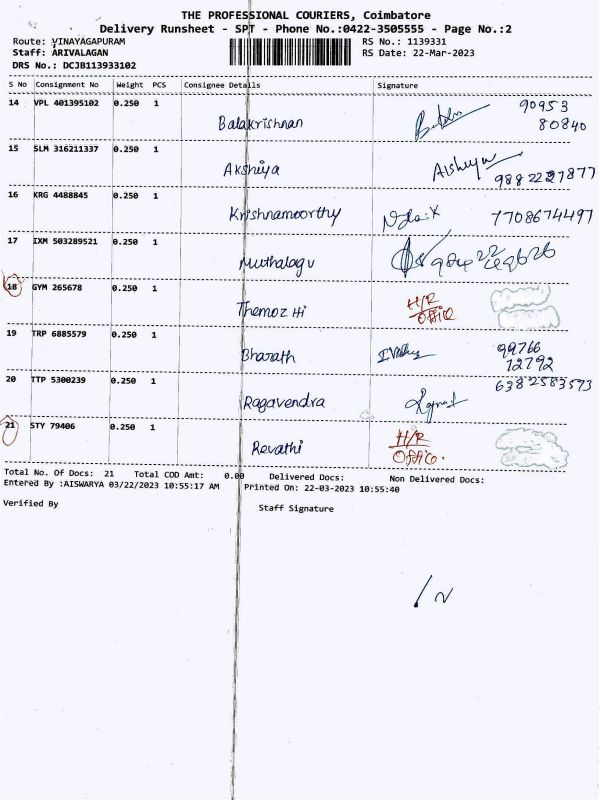 THE PROFESSIONAL COURIERS, Coimbatore
Delivery Runsheet - SPT - Phone No.:0422-3505555 - Page No.:2
Route: VINAYAGAPURAM RS No.: 1139331
Staff: ARIVALAGAN RS Date: 22-Mar-2023
DRS No.: DCJB113933102
S No Consignment No Weight PCS Consignee Details Signature
14 VPL 401395102 0.250 1 90953
Balakrishnan 80840
15 SLM 316211337 0.250 1
Akshiya 9882227877
16 KRG 4488845 0.250 1
Krishnamoorthy 7708674497
17 IXM 503289521 0.250 1
Muthalagu
18 GYM 265678 0.250 1 H/R
Themozhi Office
19 TRP 6885579 0.250 1 99766
Bharath 12792
20 TTP 5300239 0.250 1 6382583573
Ragavendra
21 STY 79406 0.250 1 H/R
Revathi Office.
Total No. Of Docs: 21 Total COD Amt: 0.00 Delivered Docs: Non Delivered Docs:
Entered By :AISWARYA 03/22/2023 10:55:17 AM Printed On: 22-03-2023 10:55:40
Verified By Staff Signature